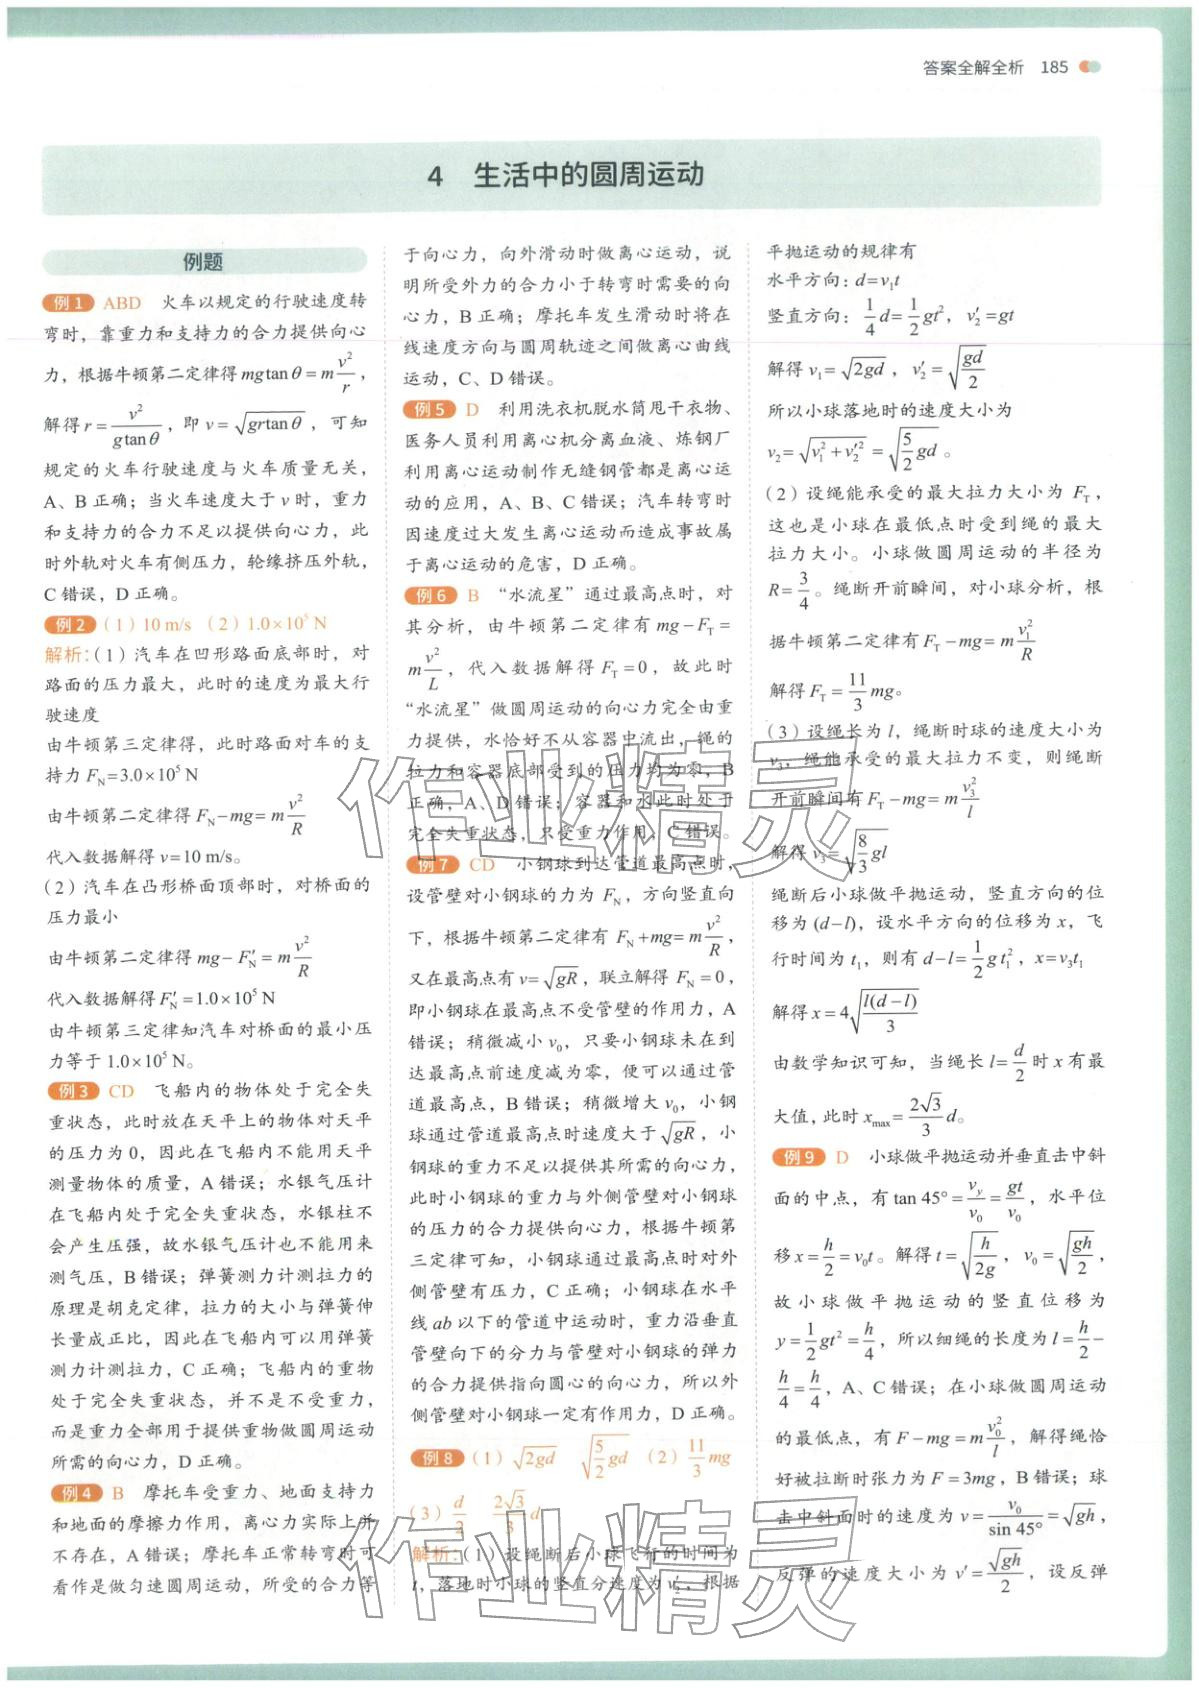 答案全解全析 185
4 生活中的圆周运动
例题
例1 ABD 火车以规定的行驶速度转
弯时，靠重力和支持力的合力提供向心
力，根据牛顿第二定律得 mg tan θ = m v²/r，
解得 r = v²/(g tan θ)，即 v = √(gr tan θ)，可知
规定的火车行驶速度与火车质量无关，
A、B 正确；当火车速度大于 v 时，重力
和支持力的合力不足以提供向心力，此
时外轨对火车有侧压力，轮缘挤压外轨，
C 错误，D 正确。
例2 (1) 10 m/s (2) 1.0×10⁵ N
解析：(1) 汽车在凹形路面底部时，对
路面的压力最大，此时的速度为最大行
驶速度
由牛顿第三定律得，此时路面对车的支
持力 F_N=3.0×10⁵ N
由牛顿第二定律得 F_N−mg= m v²/R
代入数据解得 v=10 m/s。
(2) 汽车在凸形桥面顶部时，对桥面的
压力最小
由牛顿第二定律得 mg− F′_N = m v²/R
代入数据解得 F′_N=1.0×10⁵ N
由牛顿第三定律知汽车对桥面的最小压
力等于 1.0×10⁵ N。
例3 CD 飞船内的物体处于完全失
重状态，此时放在天平上的物体对天平
的压力为 0，因此在飞船内不能用天平
测量物体的质量，A 错误；水银气压计
在飞船内处于完全失重状态，水银柱不
会产生压强，故水银气压计也不能用来
测气压，B 错误；弹簧测力计测拉力的
原理是胡克定律，拉力的大小与弹簧伸
长量成正比，因此在飞船内可以用弹簧
测力计测拉力，C 正确；飞船内的重物
处于完全失重状态，并不是不受重力，
而是重力全部用于提供重物做圆周运动
所需的向心力，D 正确。
例4 B 摩托车受重力、地面支持力
和地面的摩擦力作用，离心力实际上并
不存在，A 错误；摩托车正常转弯时可
看作是做匀速圆周运动，所受的合力等
于向心力，向外滑动时做离心运动，说
明所受外力的合力小于转弯时需要的向
心力，B 正确；摩托车发生滑动时将在
线速度方向与圆周轨迹之间做离心曲线
运动，C、D 错误。
例5 D 利用洗衣机脱水筒甩干衣物、
医务人员利用离心机分离血液、炼钢厂
利用离心运动制作无缝钢管都是离心运
动的应用，A、B、C 错误；汽车转弯时
因速度过大发生离心运动而造成事故属
于离心运动的危害，D 正确。
例6 B “水流星”通过最高点时，对
其分析，由牛顿第二定律有 mg−F_T =
m v²/L，代入数据解得 F_T=0，故此时
“水流星”做圆周运动的向心力完全由重
力提供，水恰好不从容器中流出，绳的
拉力和容器底部受到的压力均为零，B
正确，A、D 错误；容器和水此时处于
完全失重状态，只受重力作用，C 错误。
例7 CD 小钢球到达管道最高点时，
设管壁对小钢球的力为 F_N，方向竖直向
下，根据牛顿第二定律有 F_N+mg= m v²/R，
又在最高点有 v=√(gR)，联立解得 F_N=0，
即小钢球在最高点不受管壁的作用力，A
错误；稍微减小 v₀，只要小钢球未在到
达最高点前速度减为零，便可以通过管
道最高点，B 错误；稍微增大 v₀，小钢
球通过管道最高点时速度大于 √(gR)，小
钢球的重力不足以提供其所需的向心力，
此时小钢球的重力与外侧管壁对小钢球
的压力的合力提供向心力，根据牛顿第
三定律可知，小钢球通过最高点时对外
侧管壁有压力，C 正确；小钢球在水平
线 ab 以下的管道中运动时，重力沿垂直
管壁向下的分力与管壁对小钢球的弹力
的合力提供指向圆心的向心力，所以外
侧管壁对小钢球一定有作用力，D 正确。
例8 (1) √(2gd) √(5/2 gd) (2) 11/3 mg
(3) d/2 2√3/3 d
解析：(1) 设绳断后小球飞行的时间为
t，落地时小球的竖直分速度为 v′₂，根据
平抛运动的规律有
水平方向：d=v₁t
竖直方向：1/4 d=1/2 gt²，v′₂=gt
解得 v₁=√(2gd)，v′₂=√(gd/2)
所以小球落地时的速度大小为
v₂=√(v₁²+v′₂²)=√(5/2 gd)。
(2) 设绳能承受的最大拉力大小为 F_T，
这也是小球在最低点时受到绳的最大
拉力大小。小球做圆周运动的半径为
R=3/4。绳断开前瞬间，对小球分析，根
据牛顿第二定律有 F_T−mg= m v₁²/R
解得 F_T= 11/3 mg。
(3) 设绳长为 l，绳断时球的速度大小为
v₃，绳能承受的最大拉力不变，则绳断
开前瞬间有 F_T−mg= m v₃²/l
解得 v₃=√(8/3 gl)
绳断后小球做平抛运动，竖直方向的位
移为 (d−l)，设水平方向的位移为 x，飞
行时间为 t₁，则有 d−l=1/2 gt₁²，x=v₃t₁
解得 x=4√(l(d−l)/3)
由数学知识可知，当绳长 l=d/2 时 x 有最
大值，此时 x_max= 2√3/3 d。
例9 D 小球做平抛运动并垂直击中斜
面的中点，有 tan 45°= v_y/v₀ = gt/v₀，水平位
移 x= h/2 =v₀t。解得 t=√(h/2g)，v₀=√(gh/2)，
故小球做平抛运动的竖直位移为
y=1/2 gt²= h/4，所以细绳的长度为 l= h/2 −
h/4 = h/4，A、C 错误；在小球做圆周运动
的最低点，有 F−mg= m v₀²/l，解得绳恰
好被拉断时张力为 F=3mg，B 错误；球
击中斜面时的速度为 v= v₀/sin 45° =√(gh)，
反弹的速度大小为 v′= √(gh)/2，设反弹
作业精灵
作业精灵